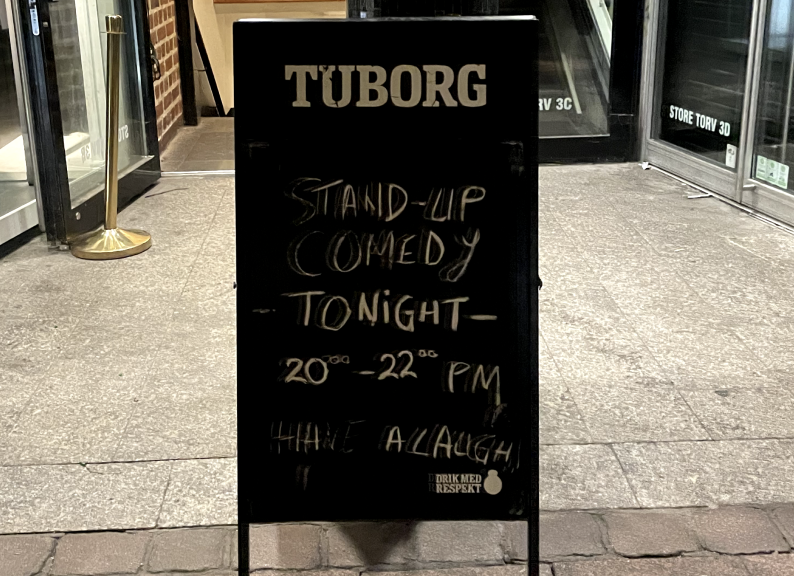 TUBORG
STAND-UP
COMEDY
-TONiGHT-
20⁰⁰-22⁰⁰ PM
HAVE A LAUGH
DRIK MED
RESPEKT
RV 3C
STORE TORV 3D